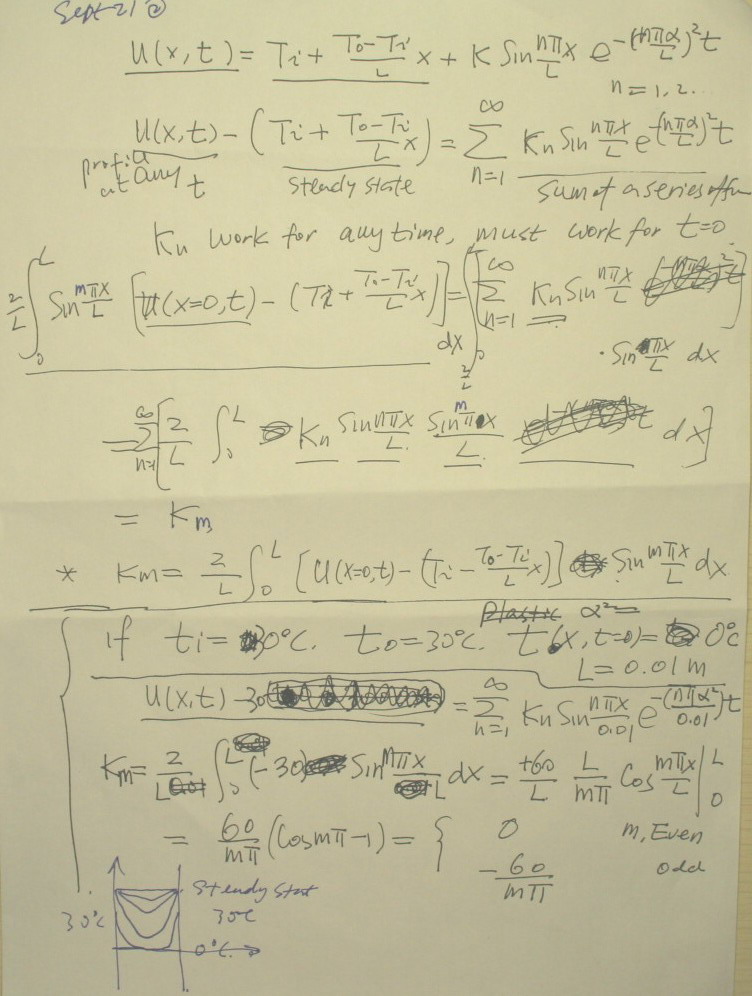 Sept 21 ②
U(x,t) = Ti + To-Ti/L x + K Sin nπx/L e^-(nπα/L)²t
n = 1, 2...
U(x,t) - (Ti + To-Ti/L x) = ∞∑n=1 Kn Sin nπx/L e^-(nπα/L)²t
profile at any t
steady state
sum of a series of fun
Kn work for any time, must work for t=0
2/L ∫₀ᴸ Sin mπx/L [U(x=0,t) - (Ti + To-Ti/L x)] dx = 2/L ∫₀ [∞∑n=1 Kn Sin nπx/L]
· Sin πx/L dx
= ∞∑n=1 [2/L ∫₀ᴸ Kn Sin nπx/L Sin mπx/L dx]
= Km
* Km = 2/L ∫₀ᴸ [U(x=0,t) - (Ti - To-Ti/L x)] Sin mπx/L dx
Plastic α²=
if ti = 30°C. to = 30°C. t(x, t=0) = 0°C
L = 0.01 m
U(x,t) - 30 = ∞∑n=1 Kn Sin nπx/0.01 e^-(nπα²/0.01)t
Km = 2/L ∫₀ᴸ (-30) Sin mπx/L dx = +60/L L/mπ Cos mπx/L |₀ᴸ
= 60/mπ (Cos mπ - 1) = { 0 m, Even
-60/mπ odd
Steady start
30°C 30°C
0°C.